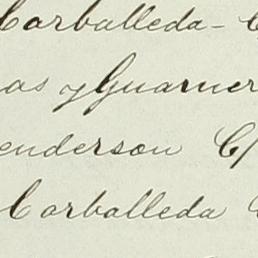 Carballeda - C
as y Guarner
enderson C/
Carballeda